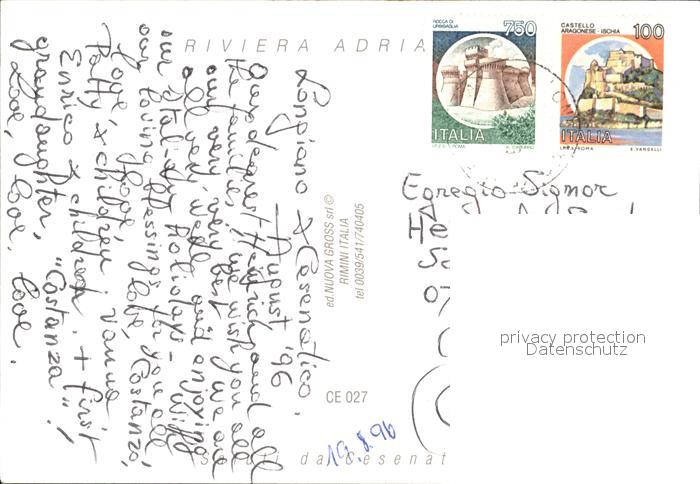 RIVIERA ADRIA
ROCCA DI
URBISAGLIA
750
ITALIA
I.P.Z.S. ROMA
CASTELLO
ARAGONESE - ISCHIA
100
ITALIA
I.P.Z.S. ROMA
E. VANGELLI
Longiano & Cesenatico,
August '96
Our dearest Heinrich and all
the families, we wish you all
our very very best. We are
all very well and enjoying
our Italian holidays - With
our loving blessings for you all
love, love, Costanzo,
Patty & children, Vanna
Enrico & children + first
grandaughter, "Costanza"!
Love, love, love.
ed. NUOVA GROSS srl ©
RIMINI ITALIA
tel 0039/541/740405
CE 027
Egregio Signor
19.8.96
privacy protection
Datenschutz